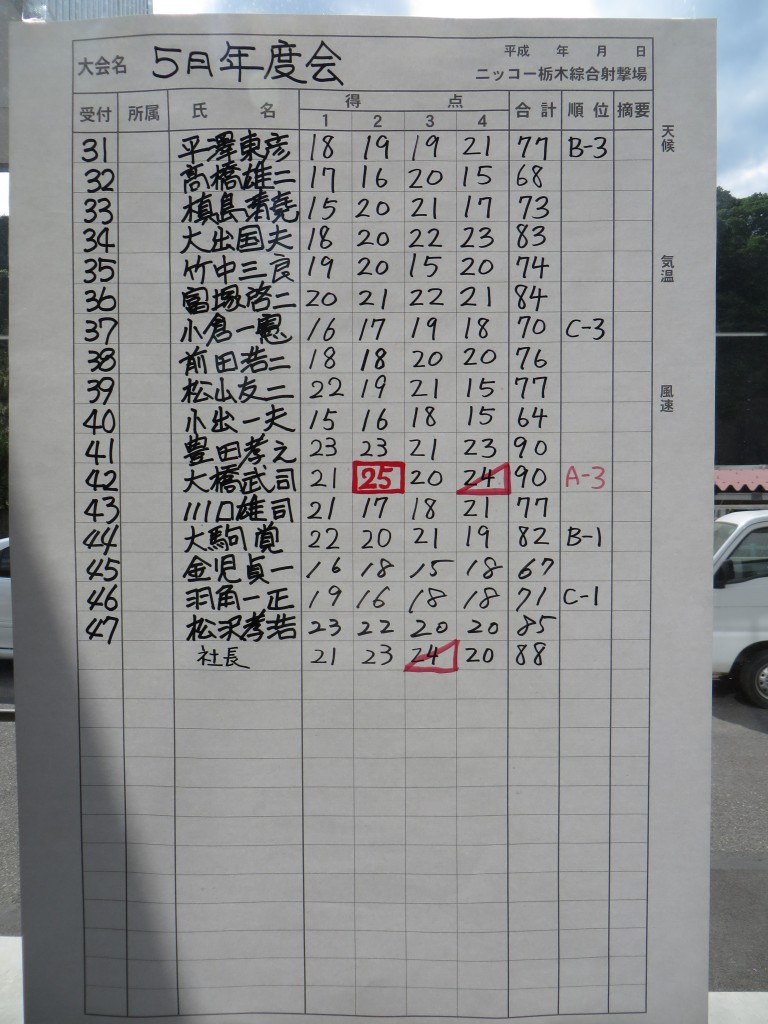 大会名 5月年度会 平成 年 月 日
ニッコー栃木綜合射撃場
受付 所属 氏 名 得 点 合計 順位 摘要
1 2 3 4
31 平澤東彦 18 19 19 21 77 B-3
32 髙橋雄二 17 16 20 15 68
33 槙島 15 20 21 17 73
34 大出国夫 18 20 22 23 83
35 竹中三良 19 20 15 20 74
36 富塚啓二 20 21 22 21 84
37 小倉一憲 16 17 19 18 70 C-3
38 前田浩二 18 18 20 20 76
39 松山友二 22 19 21 15 77
40 小出一夫 15 16 18 15 64
41 豊田孝之 23 23 21 23 90
42 大橋武司 21 25 20 24 90 A-3
43 川口雄司 21 17 18 21 77
44 大駒寛 22 20 21 19 82 B-1
45 金児貞一 16 18 15 18 67
46 羽角一正 19 16 18 18 71 C-1
47 松沢孝浩 23 22 20 20 85
社長 21 23 24 20 88
天候
気温
風速